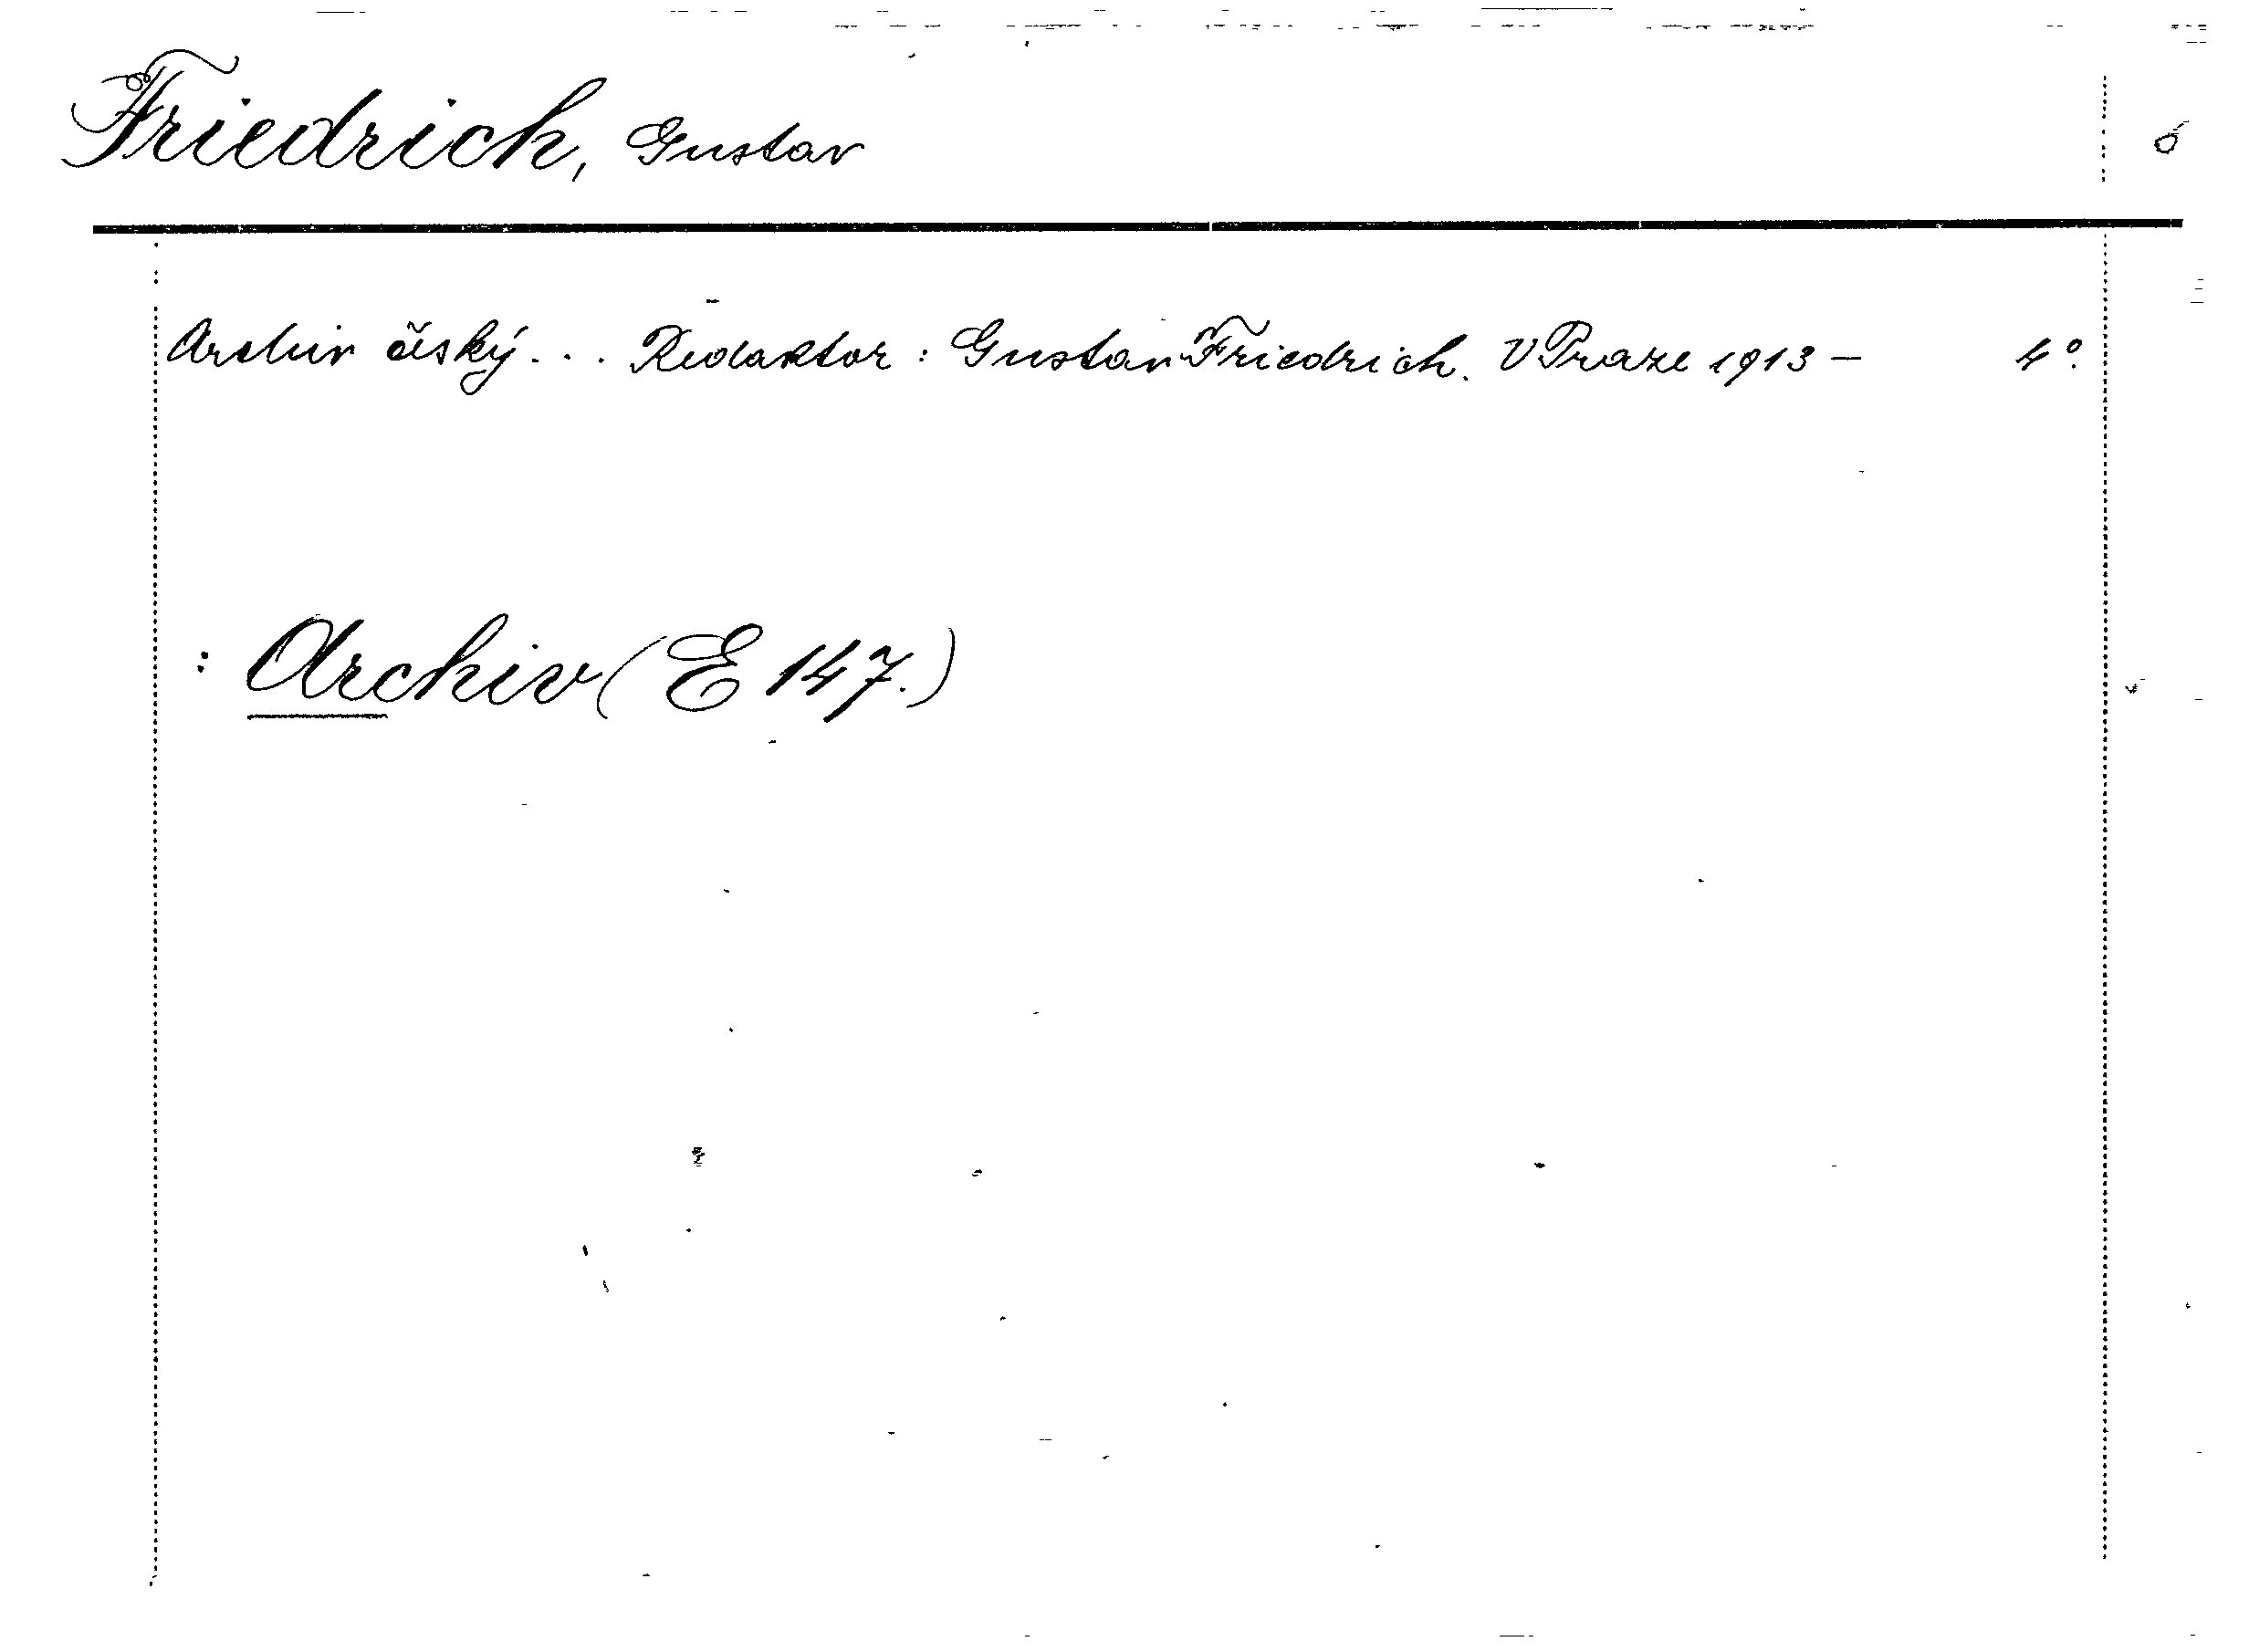 Friedrich, Gustav
Archiv český... Redaktor: Gustav Friedrich. V Praze 1913 — 4°.
: Archiv (E 147.)